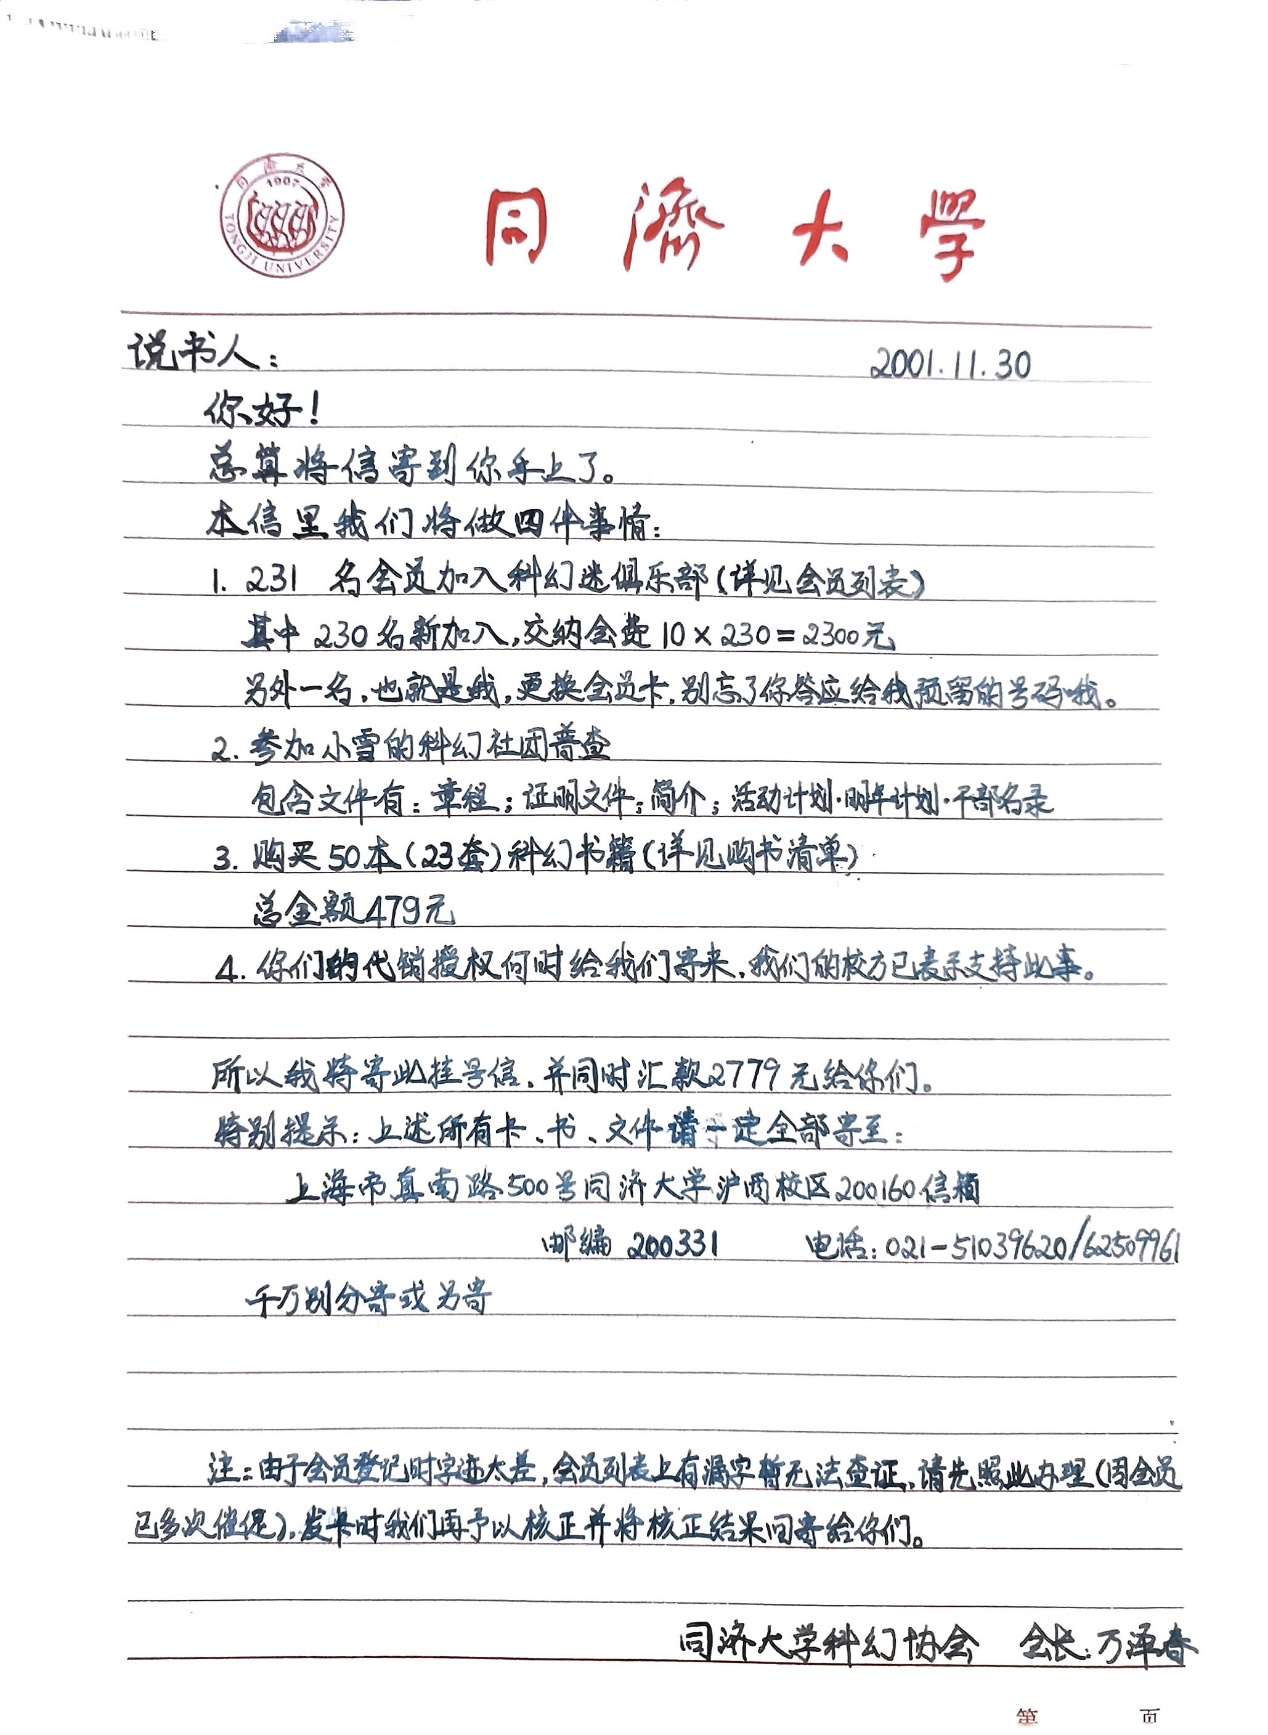 同濟大学
1907
TONGJI UNIVERSITY
同濟大學
说书人：
2001.11.30
你好！
总算将信寄到你手上了。
本信里我们将做四件事情：
1. 231 名会员加入科幻迷俱乐部（详见会员列表）
其中 230 名新加入，交纳会费 10×230=2300元
另外一名，也就是我，更换会员卡，别忘了你答应给我预留的号码哦。
2. 参加小雪的科幻社团普查
包含文件有：章程；证明文件；简介；活动计划·明年计划·干部名录
3. 购买50本（23套）科幻书籍（详见购书清单）
总金额479元
4. 你们的代销授权何时给我们寄来，我们的校方已表示支持此事。
所以我特寄此挂号信，并同时汇款2779元给你们。
特别提示：上述所有卡、书、文件请一定全部寄至：
上海市真南路500号同济大学沪西校区200160信箱
邮编 200331 电话：021-51039620/62509961
千万别分寄或另寄
注：由于会员登记时字迹太差，会员列表上有漏字暂无法查证，请先照此办理（因会员
已多次催促），发卡时我们再予以核正并将核正结果回寄给你们。
同济大学科幻协会 会长：万泽春
第 页